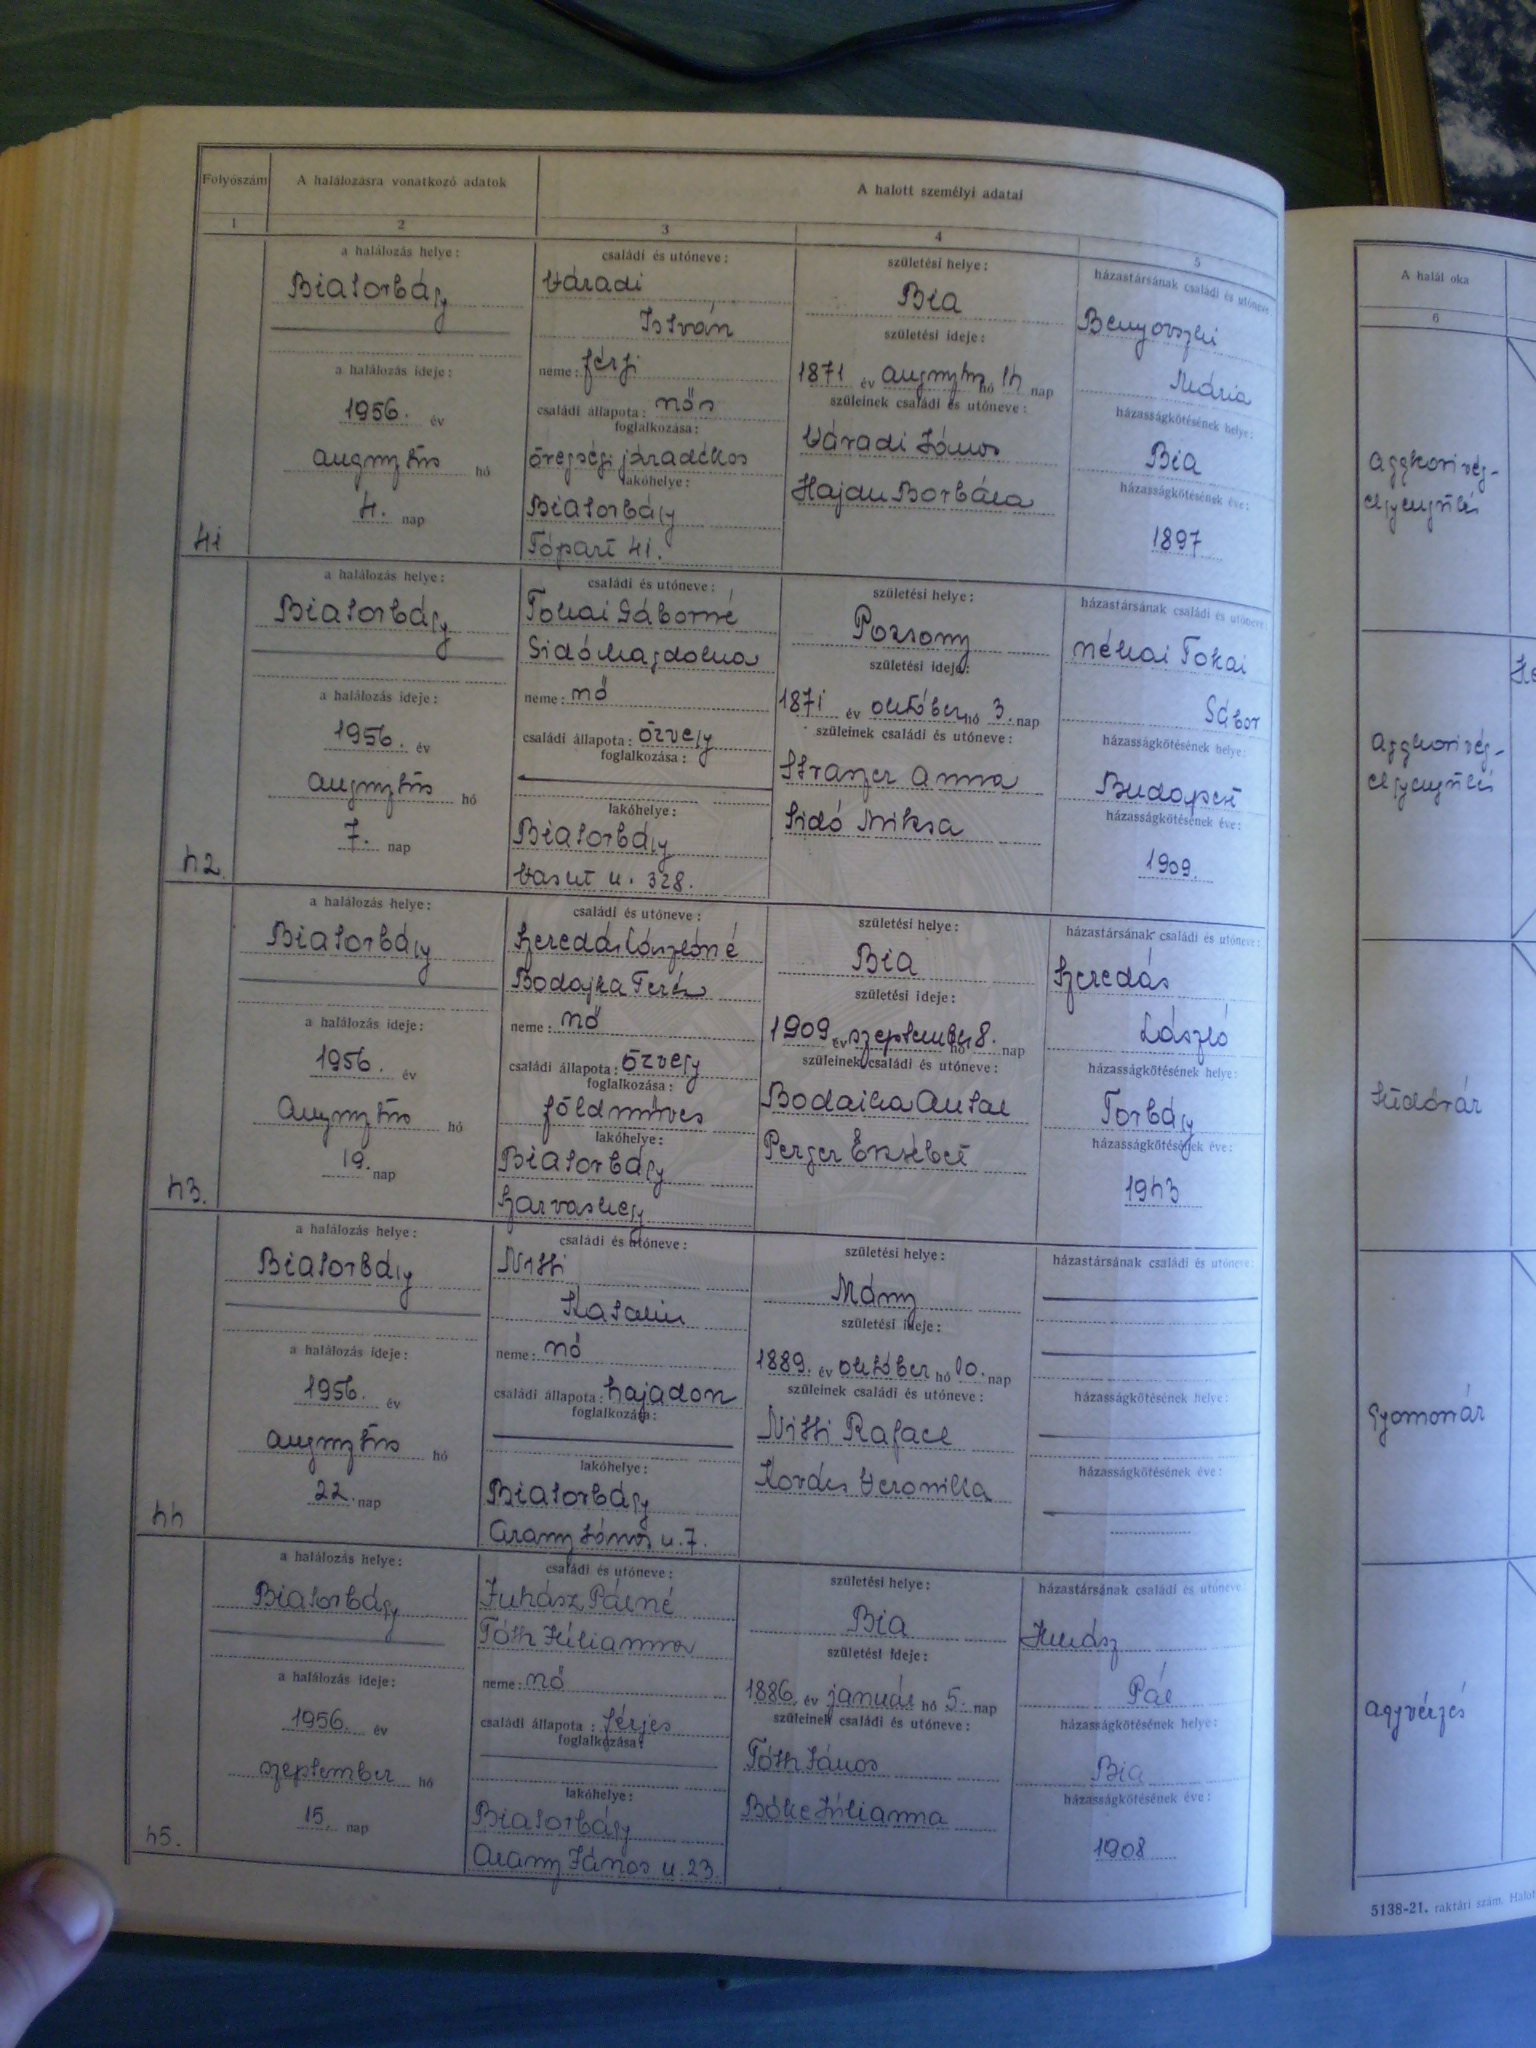 Folyószám
A halálozásra vonatkozó adatok
A halott személyi adatai
1
2
3
4
5
a halálozás helye:
Biatorbágy
a halálozás ideje:
1956. év
augusztus hó
4. nap
41
családi és utóneve:
Váradi
István
neme: férfi
családi állapota: nős
foglalkozása:
öregségi járadékos
lakóhelye:
Biatorbágy
Tópart 41.
születési helye:
Bia
születési ideje:
1871 év augusztus hó 14 nap
szüleinek családi és utóneve:
Váradi János
Hajdu Borbála
házastársának családi és utóneve
Benyovszki
Mária
házasságkötésének helye:
Bia
házasságkötésének éve:
1897
a halálozás helye:
Biatorbágy
a halálozás ideje:
1956. év
augusztus hó
7. nap
42.
családi és utóneve:
Tokai Gáborné
Sidó Magdolna
neme: nő
családi állapota: özvegy
foglalkozása:
lakóhelye:
Biatorbágy
Vasut u. 328.
születési helye:
Pozsony
születési ideje:
1871 év október hó 3. nap
szüleinek családi és utóneve:
Straszer Anna
Sidó Miksa
házastársának családi és utóneve:
néhai Tokai
Gábor
házasságkötésének helye:
Budapest
házasságkötésének éve:
1909.
a halálozás helye:
Biatorbágy
a halálozás ideje:
1956. év
Augusztus hó
19. nap
43.
családi és utóneve:
Szeredás Lászlóné
Bodajka Teréz
neme: nő
családi állapota: özvegy
foglalkozása:
földműves
lakóhelye:
Biatorbágy
Szarvashegy
születési helye:
Bia
születési ideje:
1909 év szeptember hó 8. nap
szüleinek családi és utóneve:
Bodaika Antal
Perger Erzsébet
házastársának családi és utóneve:
Szeredás
László
házasságkötésének helye:
Torbágy
házasságkötésének éve:
1943
a halálozás helye:
Biatorbágy
a halálozás ideje:
1956. év
augusztus hó
22. nap
44
családi és utóneve:
Witti
Katalin
neme: nő
családi állapota: hajadon
foglalkozása:
lakóhelye:
Biatorbágy
Arany János u. 7.
születési helye:
Mány
születési ideje:
1889. év október hó 10. nap
szüleinek családi és utóneve:
Witti Rafael
Kovács Veronika
házastársának családi és utóneve:
házasságkötésének helye:
házasságkötésének éve:
a halálozás helye:
Biatorbágy
a halálozás ideje:
1956. év
szeptember hó
15. nap
45.
családi és utóneve:
Juhász Pálné
Tóth Júlianna
neme: nő
családi állapota: férjes
foglalkozása:
lakóhelye:
Biatorbágy
Arany János u. 23.
születési helye:
Bia
születési ideje:
1886 év január hó 5. nap
szüleinek családi és utóneve:
Tóth János
Bőke Júlianna
házastársának családi és utóneve:
Juhász
Pál
házasságkötésének helye:
Bia
házasságkötésének éve:
1908
A halál oka
6
aggkori vég-
elgyengülés
aggkori vég-
elgyengülés
tüdőrák
gyomorrák
agyvérzés
5138-21. raktári szám.